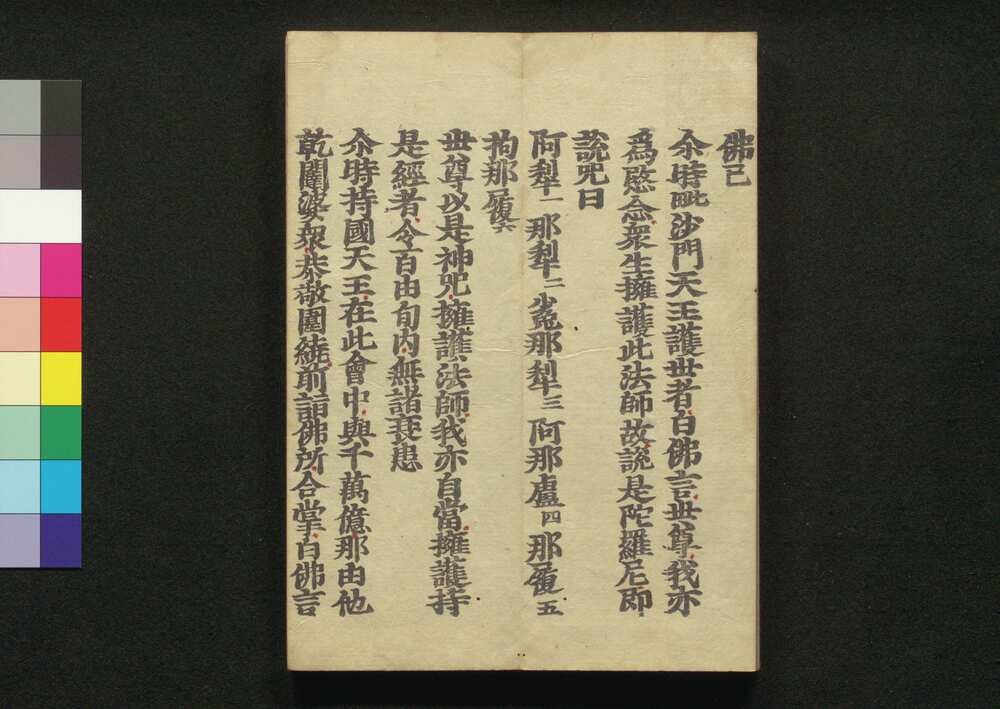 佛已
尒時毗沙門天王護世者白佛言世尊我亦
爲愍念衆生擁護此法師故說是陀羅尼即
說咒曰
阿犁一 那犁二 㝹那犁三 阿那盧四 那履五
拘那履六
世尊以是神咒擁護法師我亦自當擁護持
是經者令百由旬內無諸衰患
尒時持國天王在此會中與千萬億那由他
乾闥婆衆恭敬圍繞前詣佛所合掌白佛言